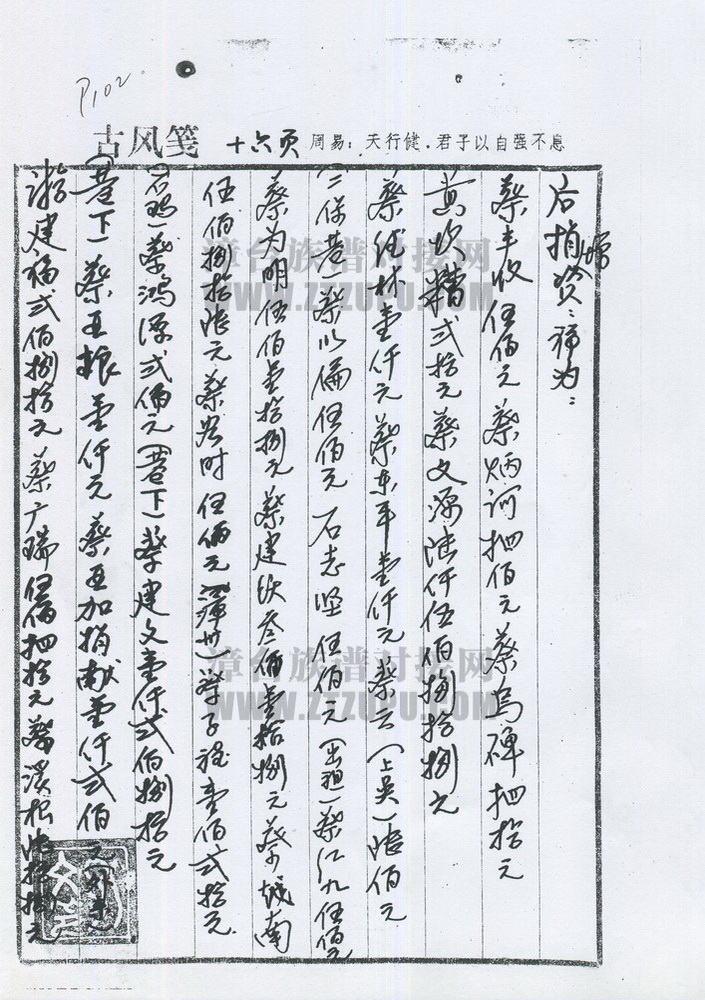 P102
古风笺 十六页 周易：天行健．君子以自强不息
后增捐资：稀为：
蔡丰收伍佰元 蔡炳河捌佰元 蔡乌碑捌拾元
黄 糟贰拾元 蔡文源陆仟伍佰捌拾捌元
蔡 林壹仟元 蔡东平壹仟元 蔡 （上吴）陆佰元
（二保巷）蔡以 伍佰元 石志坚伍佰元 蔡红九伍佰元
蔡为明伍佰壹拾捌元 蔡建 叁佰壹拾捌元 蔡城南
伍佰捌拾 元 蔡 时伍佰元（漳州）蔡子 壹佰贰拾元
（石码）蔡鸿源贰佰元（巷下）蔡建文壹仟贰佰捌拾元
（巷下）蔡亚粮壹仟元 蔡亚加捐献壹仟贰佰元
游建福贰佰捌拾元 蔡广瑞 元 蔡溪松 元
漳台族谱对接网
WWW.ZTZUPU.COM
漳台族谱对接网
WWW.ZTZUPU.COM